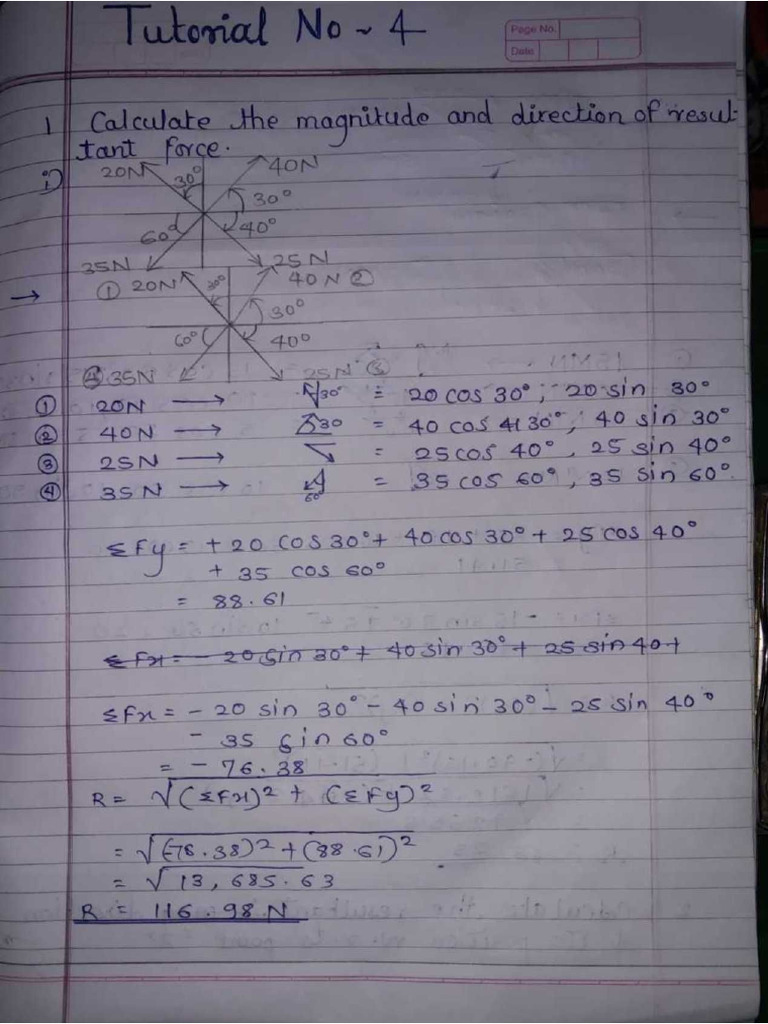 Tutorial No ~ 4
Page No.
Date
1 Calculate the magnitude and direction of resul-
tant force.
i)
20N 30° 40N
30°
60° 40°
35N 25N
→ ① 20N 30° 40N ②
30°
60° 40°
④ 35N 25N ③
① 20N → 30° = 20 cos 30°; 20 sin 30°
② 40N → 30 = 40 cos 30°, 40 sin 30°
③ 25N → = 25 cos 40°, 25 sin 40°
④ 35N → 60° = 35 cos 60°, 35 sin 60°.
ΣFy = + 20 cos 30° + 40 cos 30° + 25 cos 40°
+ 35 cos 60°
= 88.61
ΣFx = - 20 sin 30° + 40 sin 30° + 25 sin 40 +
ΣFx = - 20 sin 30° - 40 sin 30° - 25 sin 40°
- 35 sin 60°
= - 76.38
R = √(ΣFx)² + (ΣFy)²
= √(-76.38)² + (88.61)²
= √13,685.63
R = 116.98 N